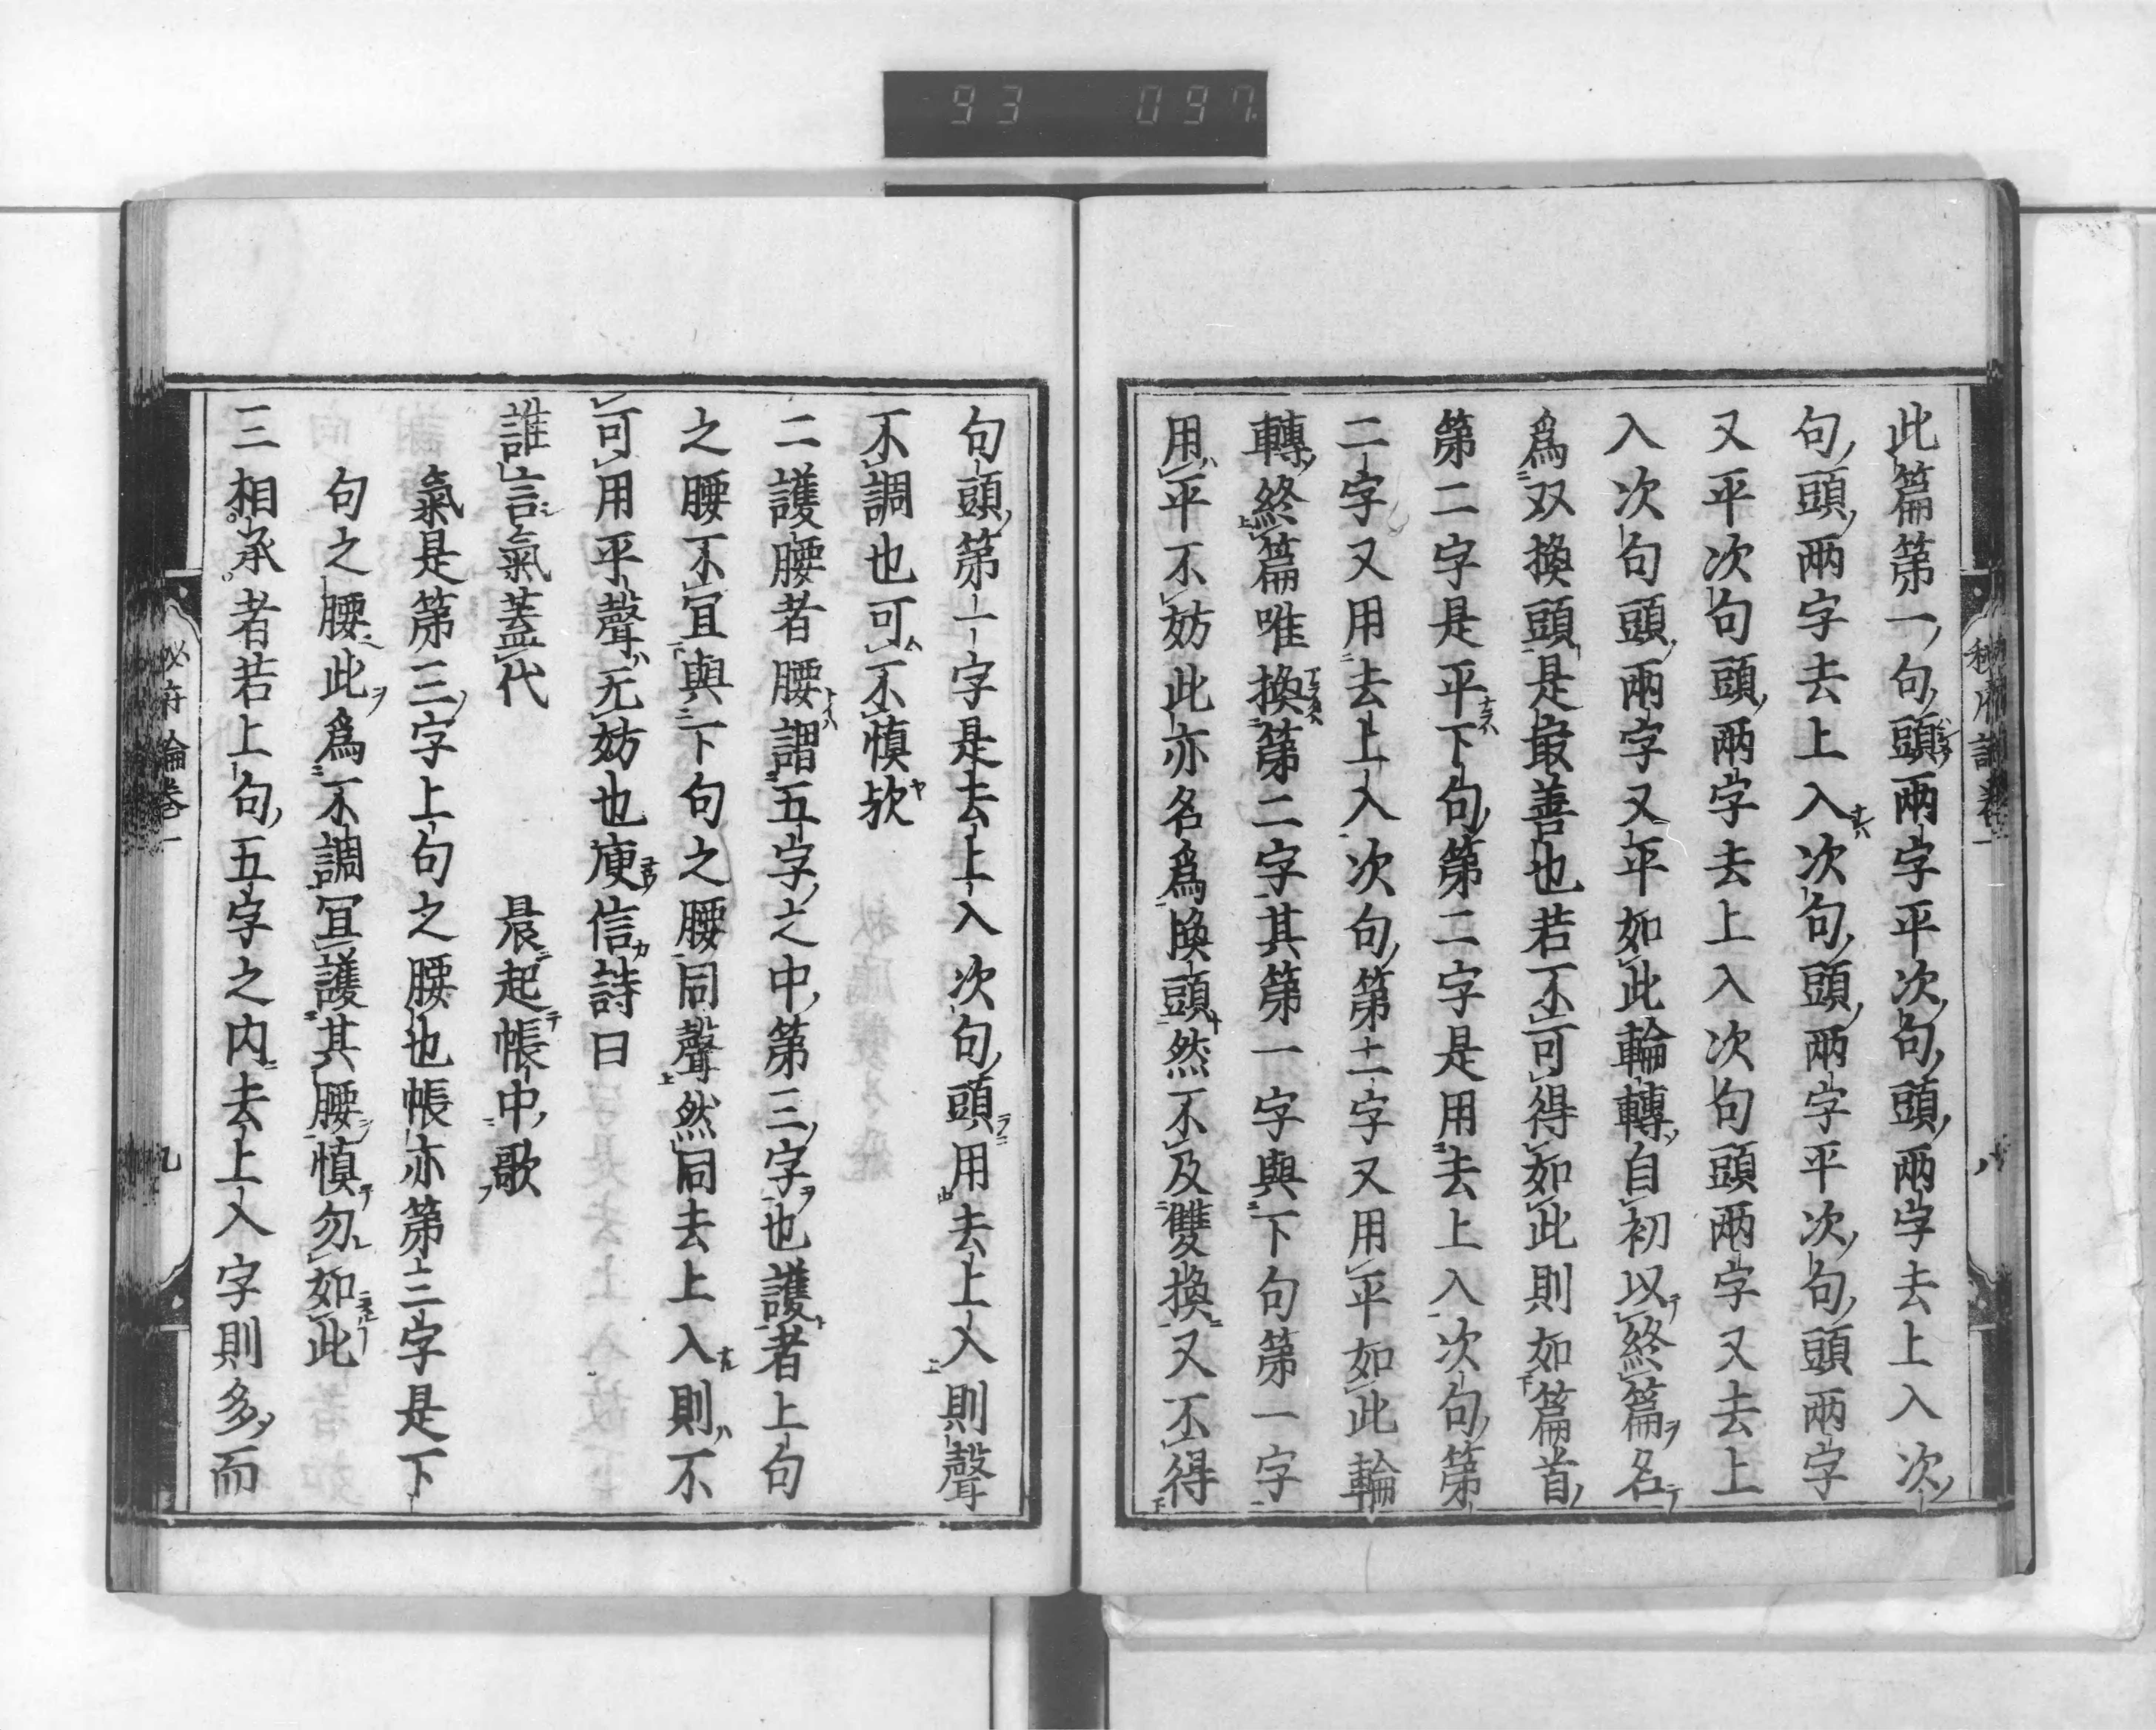 93 097
此篇第一句頭兩字平次句頭兩字去上入次
句頭兩字去上入次句頭兩字平次句頭兩字
又平次句頭兩字去上入次句頭兩字又去上
入次句頭兩字又平如此輪轉自初以終篇名
爲双換頭是最善也若不可得如此則如篇首
第二字是平下句第二字是用去上入次句第
二字又用去上入次句第二字又用平如此輪
轉終篇唯換第二字其第一字與下句第一字
用平不妨此亦名爲換頭然不及雙換又不得
句頭第一字是去上入次句頭用去上入則聲
不調也可不慎欤
二護腰者腰謂五字之中第三字也護者上句
之腰不宜與下句之腰同聲然同去上入則不
可用平聲无妨也庾信詩曰
誰言氣蓋代 晨起帳中歌
氣是第三字上句之腰也帳亦第三字是下
句之腰此爲不調宜護其腰慎勿如此
三相承者若上句五字之內去上入字則多而